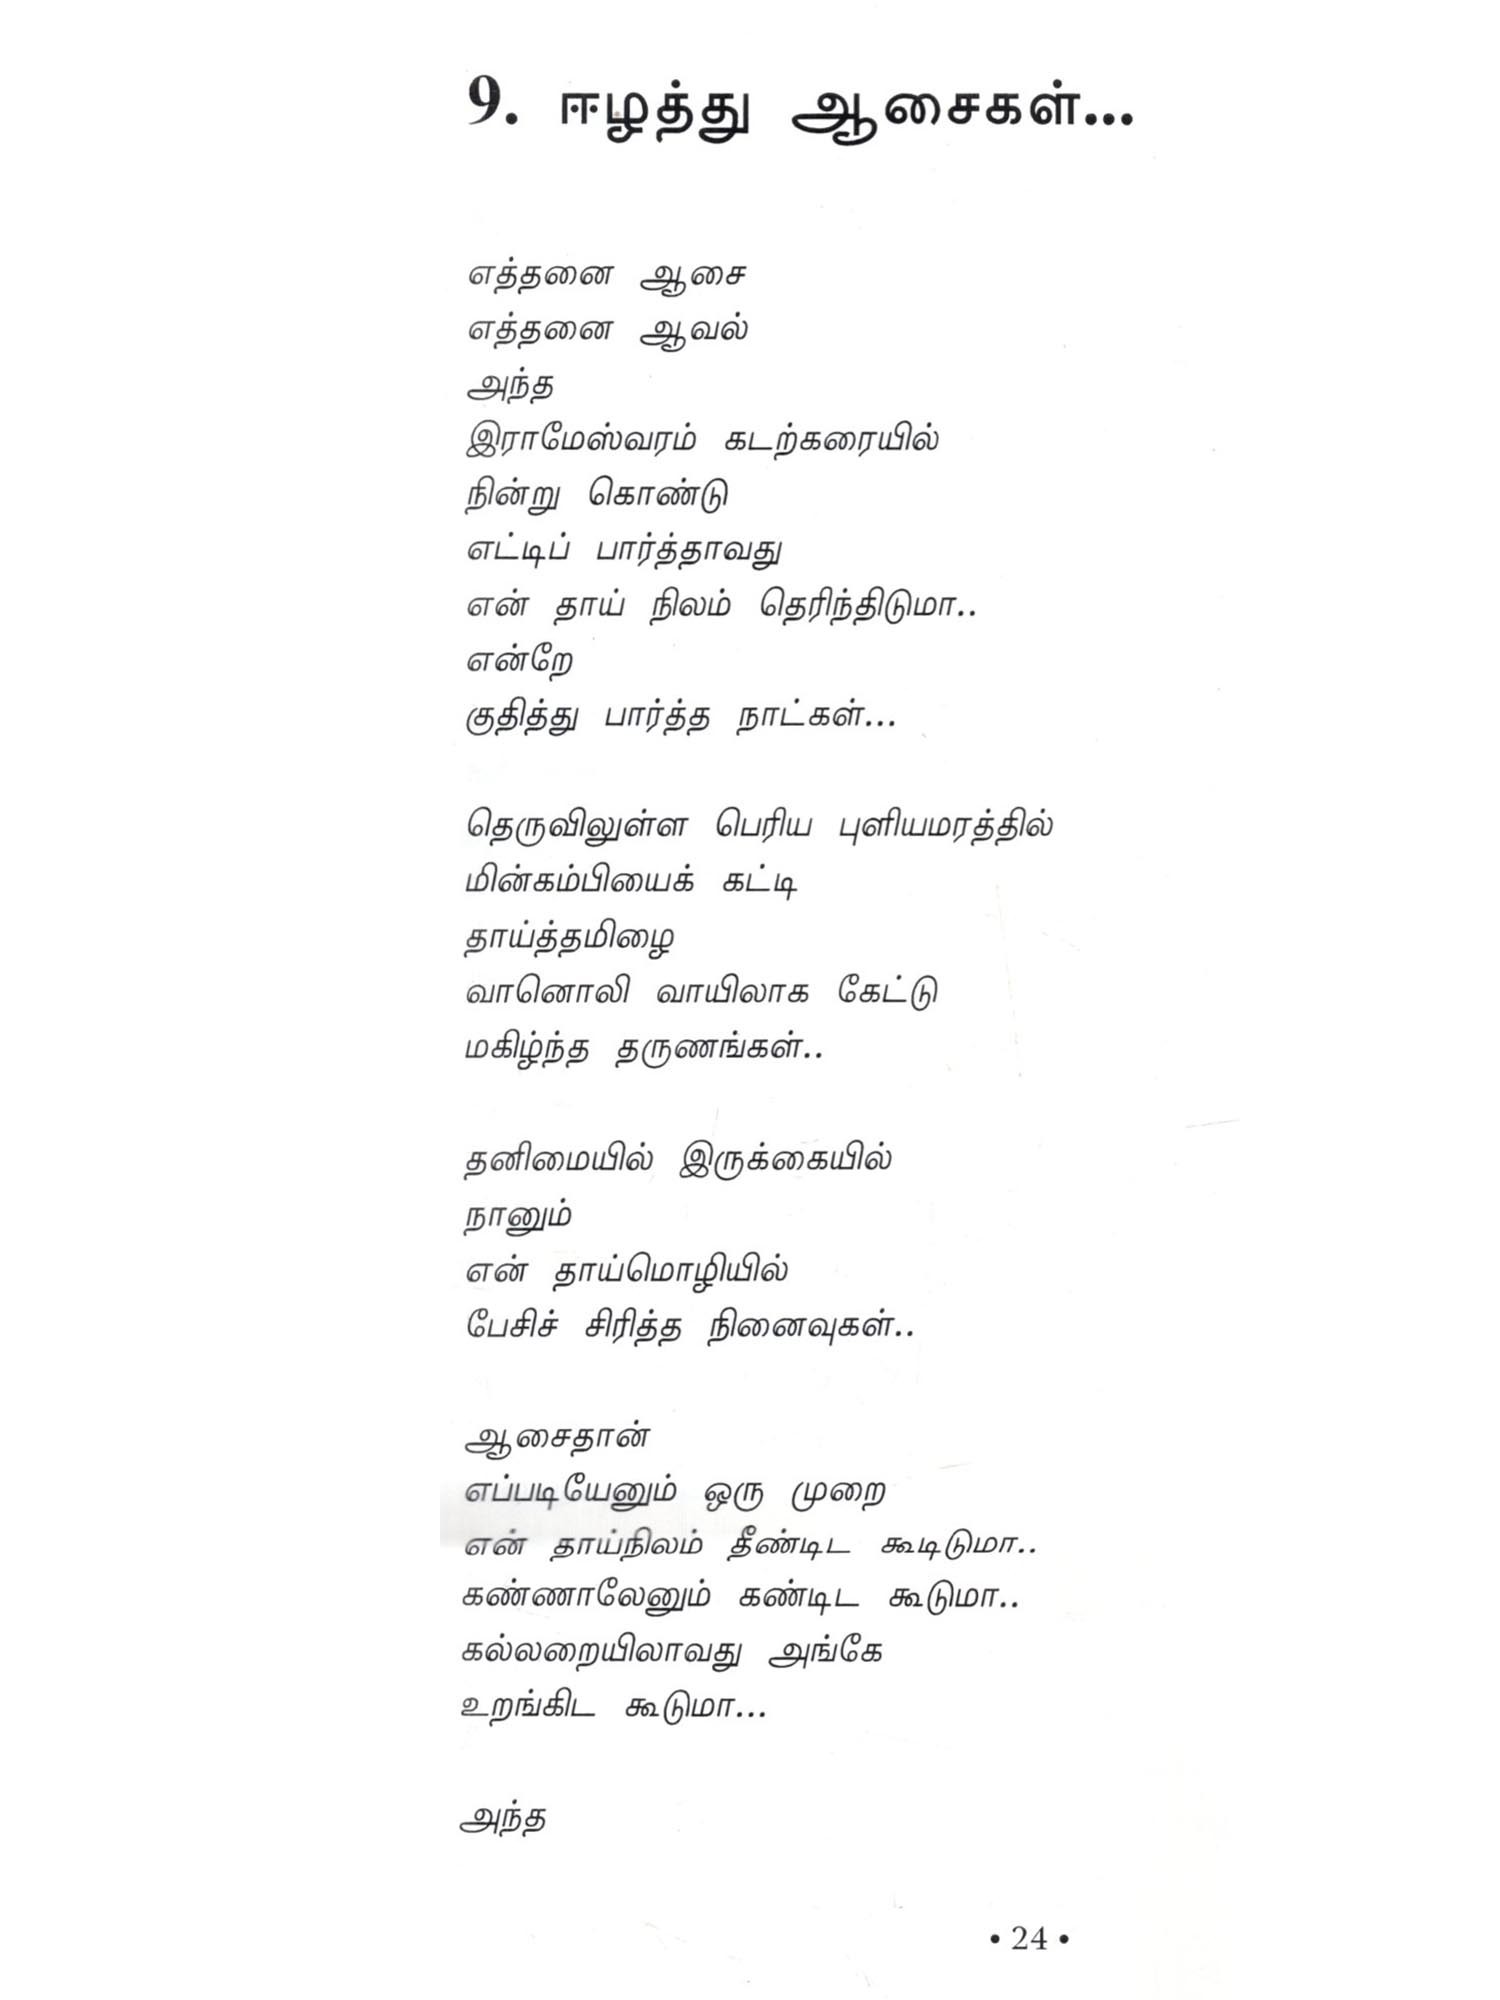 9. ஈழத்து ஆசைகள்...
எத்தனை ஆசை
எத்தனை ஆவல்
அந்த
இராமேஸ்வரம் கடற்கரையில்
நின்று கொண்டு
எட்டிப் பார்த்தாவது
என் தாய் நிலம் தெரிந்திடுமா..
என்றே
குதித்து பார்த்த நாட்கள்...
தெருவிலுள்ள பெரிய புளியமரத்தில்
மின்கம்பியைக் கட்டி
தாய்த்தமிழை
வானொலி வாயிலாக கேட்டு
மகிழ்ந்த தருணங்கள்..
தனிமையில் இருக்கையில்
நானும்
என் தாய்மொழியில்
பேசிச் சிரித்த நினைவுகள்..
ஆசைதான்
எப்படியேனும் ஒரு முறை
என் தாய்நிலம் தீண்டிட கூடிடுமா..
கண்ணாலேனும் கண்டிட கூடுமா..
கல்லறையிலாவது அங்கே
உறங்கிட கூடுமா...
அந்த
• 24 •